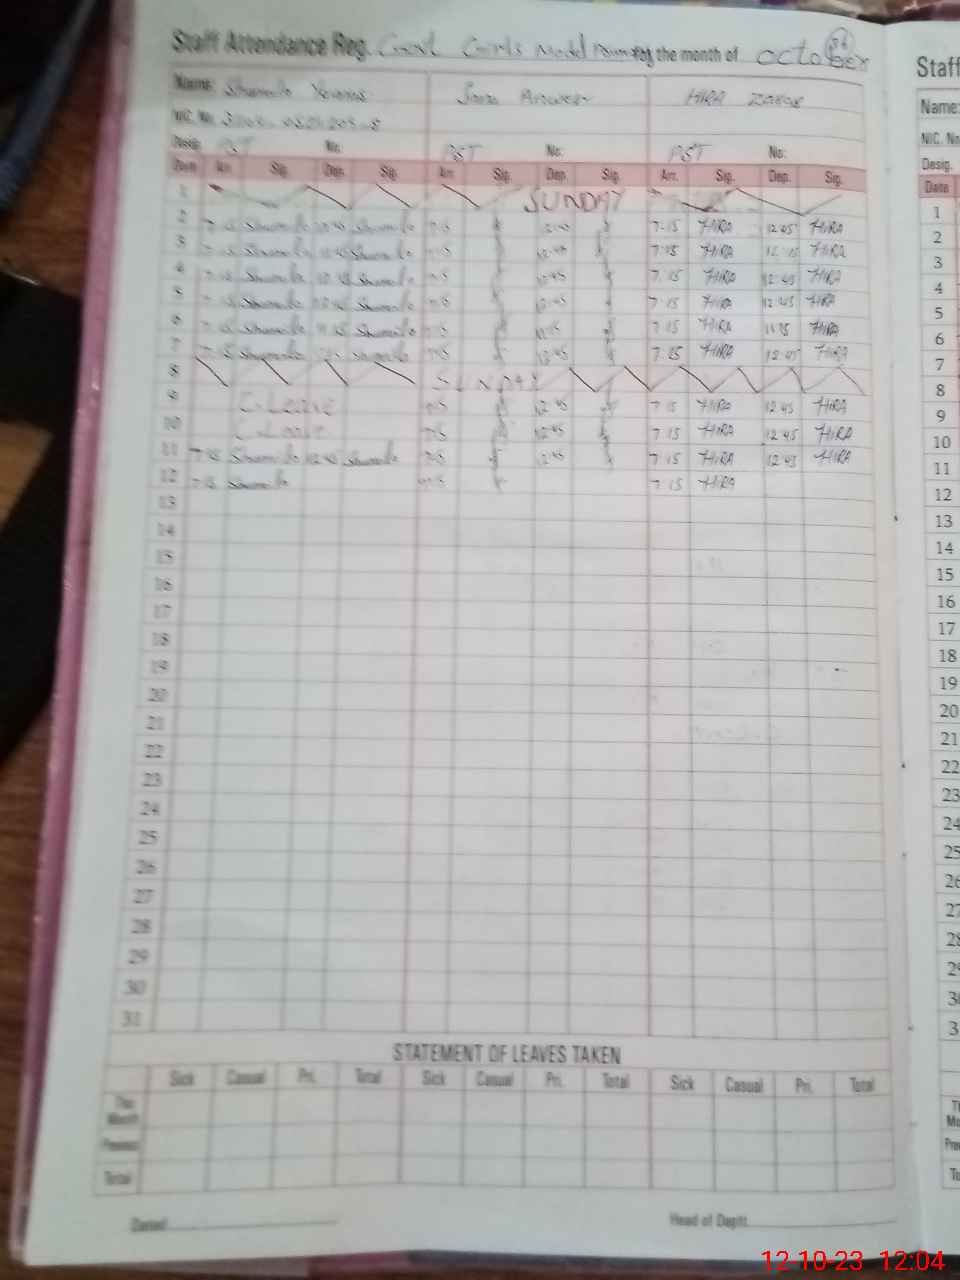 Staff Attendance Reg. Govt Girls Model for the month of October
Staff
Name: Shumila HIRA
Name:
NIC. No.
NIC. No
Desig. PST No: PST No: PST No:
Desig.
Date Arr. Sig. Dep. Sig. Arr. Sig. Dep. Sig. Arr. Sig. Dep. Sig.
Date
1 SUNDAY
1
2 7:15 Shumila 12:45 Shumila 7:15 12:45 7:15 HIRA 12:45 HIRA
2
3 7:15 Shumila 12:45 Shumila 7:15 12:45 7:15 HIRA 12:45 HIRA
3
4 7:15 Shumila 12:45 Shumila 7:15 12:45 7:15 HIRA 12:45 HIRA
4
5 7:15 Shumila 12:45 Shumila 7:15 12:45 7:15 HIRA 12:45 HIRA
5
6 7:15 Shumila 11:15 Shumila 7:15 11:15 7:15 HIRA 11:15 HIRA
6
7 7:15 Shumila Shumila 7:15 12:45 7:15 HIRA 12:45 HIRA
7
8 SUNDAY
8
9 C-Leave 7:15 12:45 7:15 HIRA 12:45 HIRA
9
10 C-Leave 7:15 12:45 7:15 HIRA 12:45 HIRA
10
11 7:15 Shumila 12:45 Shumila 7:15 12:45 7:15 HIRA 12:45 HIRA
11
12 7:15 Shumila 7:15 7:15 HIRA
12
13
13
14
14
15
15
16
16
17
17
18
18
19
19
20
20
21
21
22
22
23
23
24
24
25
25
26
26
27
27
28
28
29
29
30
30
31
STATEMENT OF LEAVES TAKEN
Sick Casual Pri. Total Sick Casual Pri. Total Sick Casual Pri. Total
This Month
Previous
Total
Dated
Head of Deptt.
12-10-23 12:04